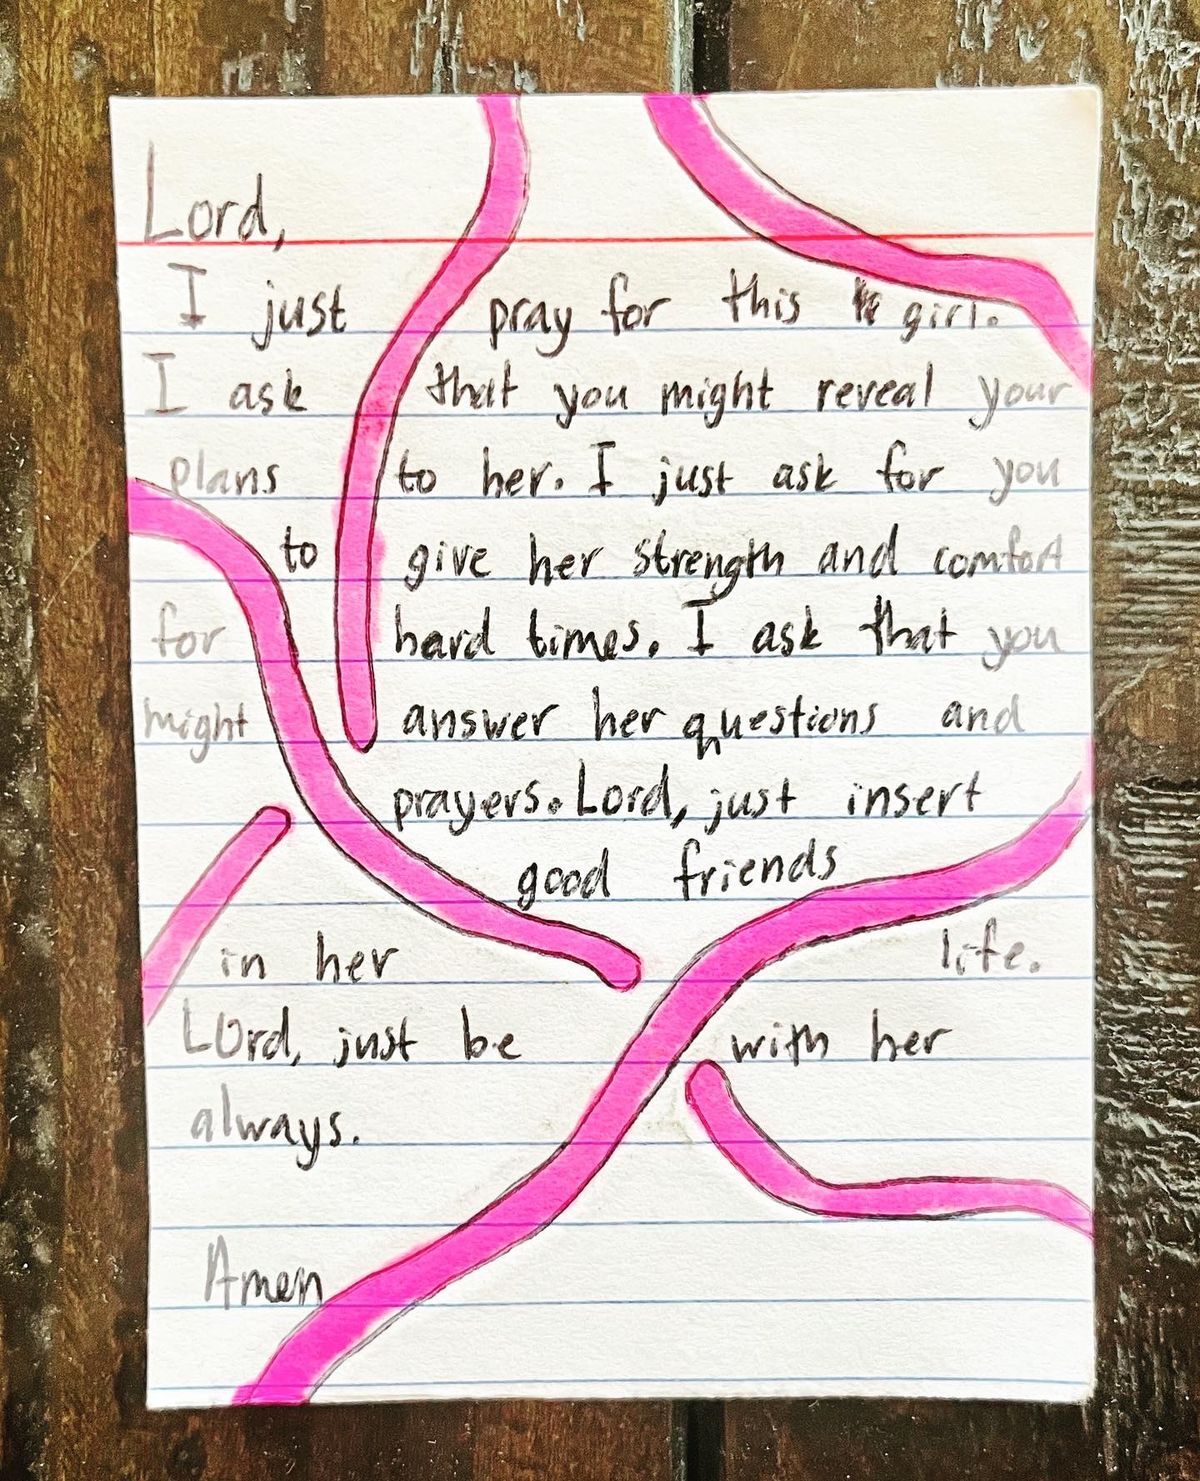 Lord,
I just pray for this girl.
I ask that you might reveal your
plans to her. I just ask for you
to give her strength and comfort
for hard times. I ask that you
might answer her questions and
prayers. Lord, just insert
good friends
in her life.
LOrd, just be with her
always.
Amen